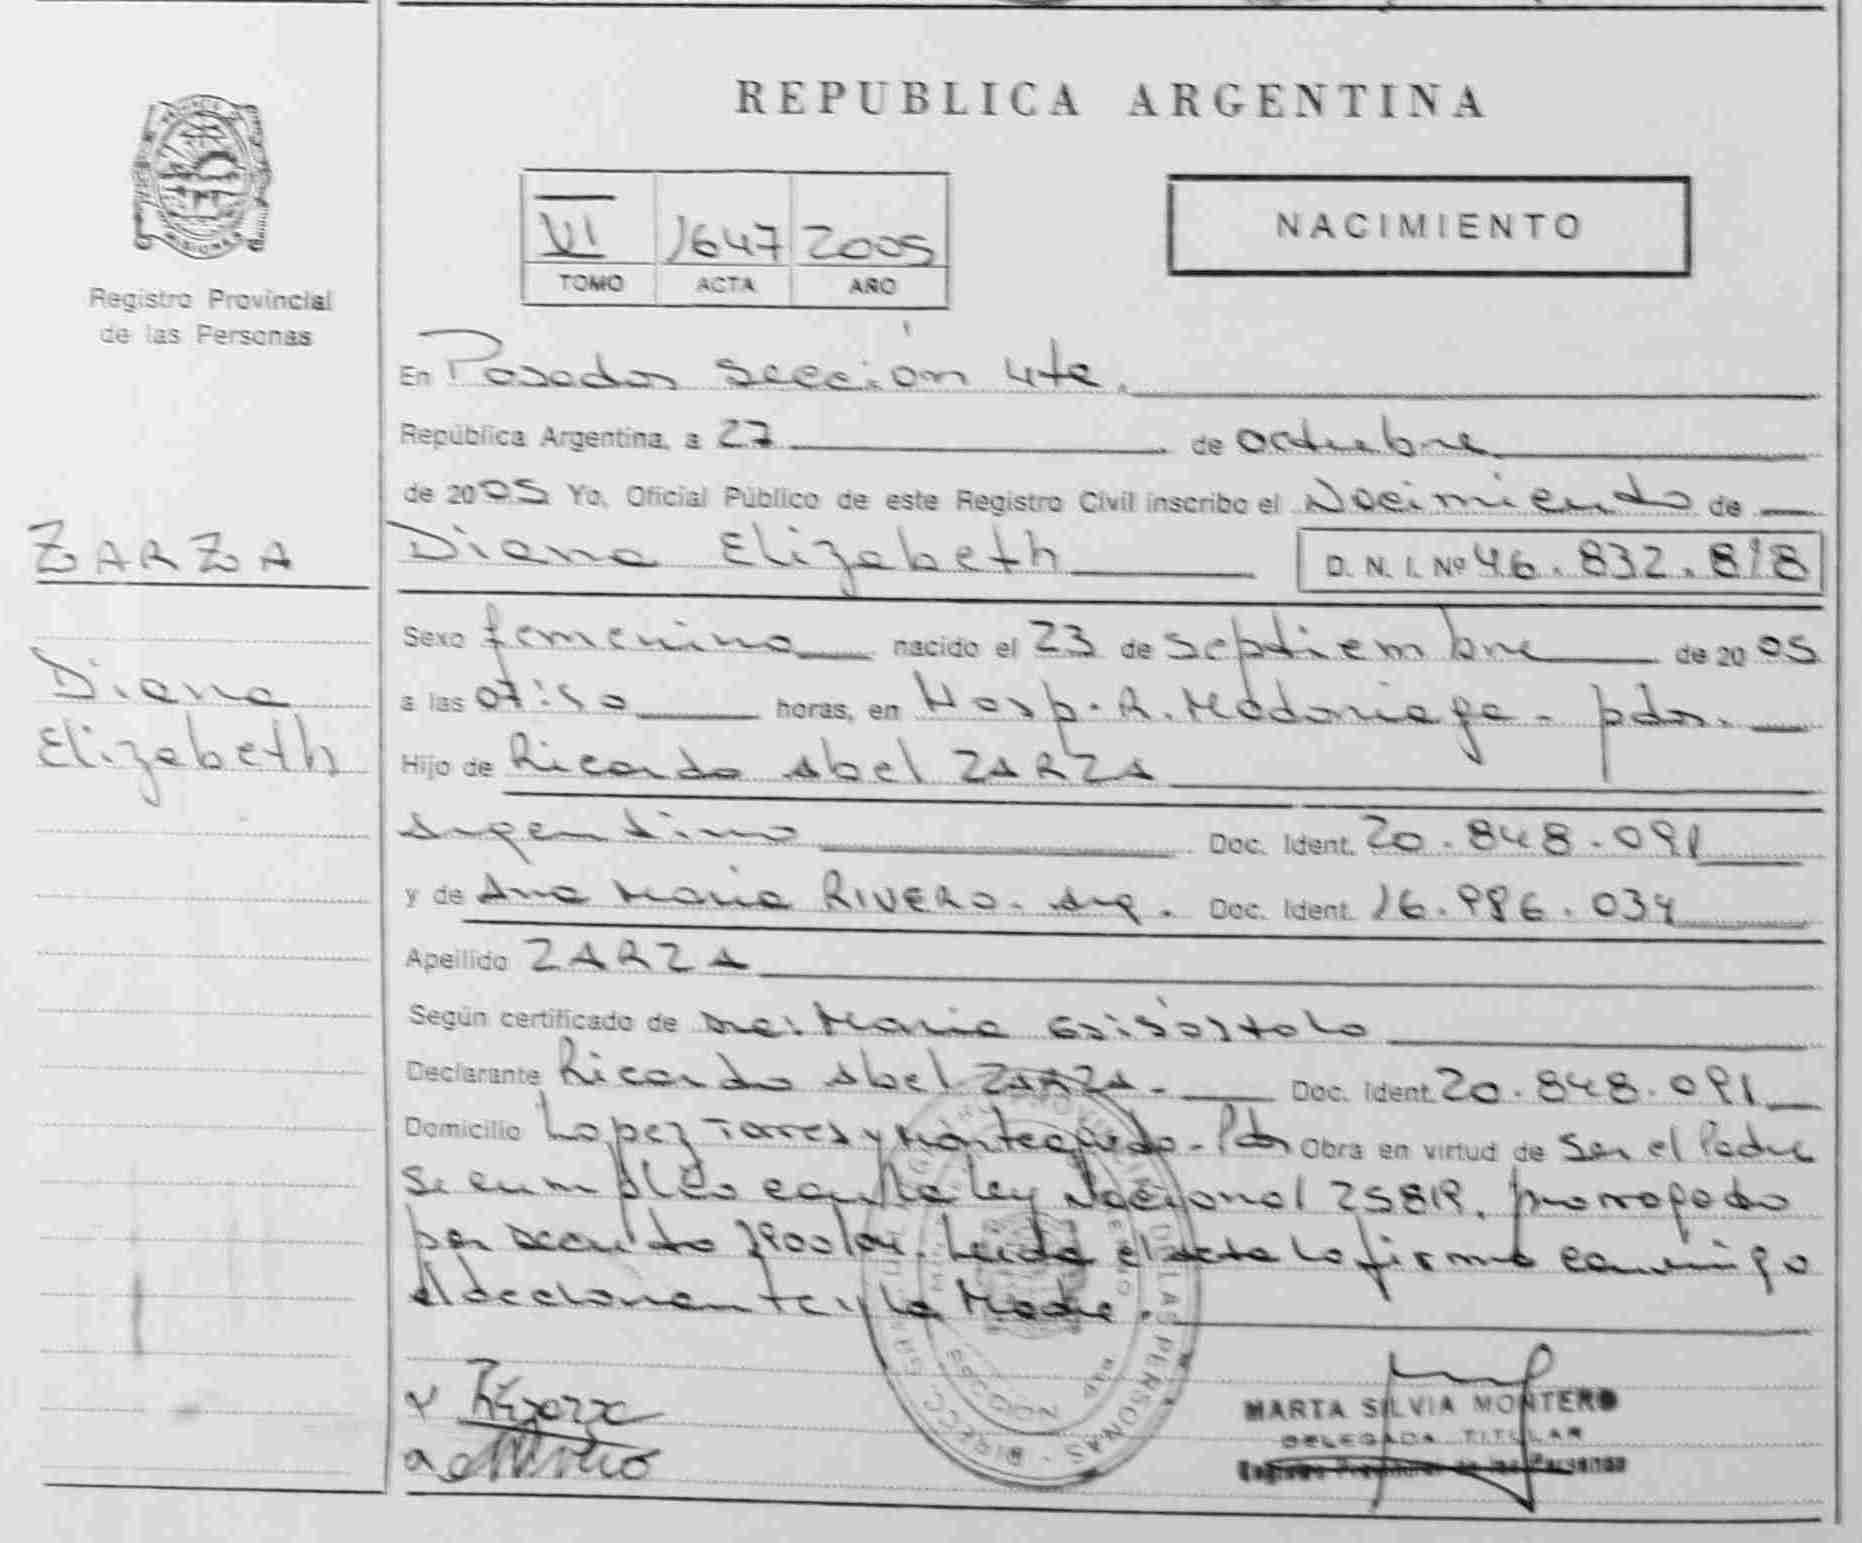 REPUBLICA ARGENTINA
MISIONES
Registro Provincial
de las Personas
VI 1647 2005
TOMO ACTA AÑO
NACIMIENTO
En Posadas Sección 4ta.
República Argentina, a 27 de octubre
de 2005 Yo, Oficial Público de este Registro Civil inscribo el Nacimiento de
ZARZA
Diana Elizabeth D. N. I. Nº 46.832.818
Sexo femenino nacido el 23 de septiembre de 2005
Diana
Elizabeth
a las 07:50 horas, en Hosp. R. Madariaga - pdas.
Hijo de Ricardo Abel ZARZA
Argentino Doc. Ident. 20.848.091
y de Ana Maria RIVERO. Arg. Doc. Ident. 16.986.034
Apellido ZARZA
Según certificado de Maria
Declarante Ricardo Abel ZARZA. Doc. Ident. 20.848.091
Domicilio Lopez Torres y Monteagudo - Pdas Obra en virtud de ser el Padre
Se cumpleo con la ley Nacional 25819, prorrogado
por decreto 1900/04. Leida el acta la firma conmigo
el declarante y la Madre.
MARTA SILVIA MONTERO
DELEGADA TITULAR
Registro Provincial de las Personas